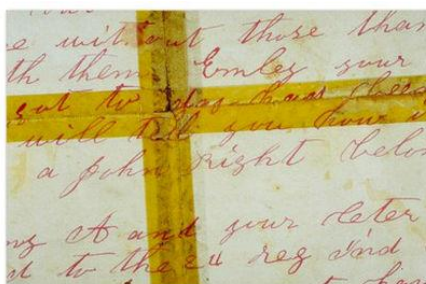 e without those than
th them Emley your
got to day has been
will tell you how
a john right below
ng A and your leter
to the 24 reg Ind